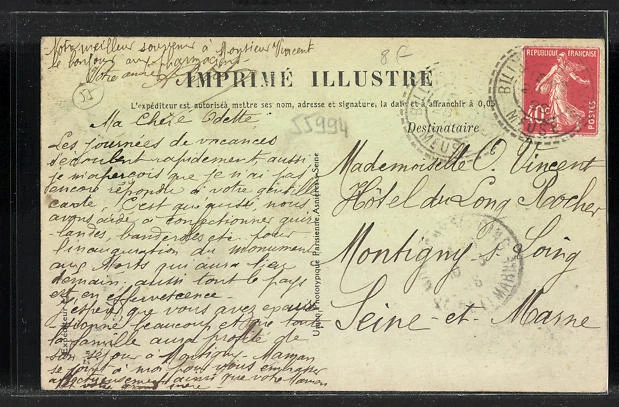 Notre meilleur souvenir à Monsieur Vincent
le bonjour aux
Votre amie
8 F
55
IMPRIMÉ ILLUSTRÉ
L'expéditeur est autorisé à mettre ses nom, adresse et signature, la date et à affranchir à 0,05
Ma Chère Odette
55994
Destinataire
RÉPUBLIQUE FRANÇAISE
40c
POSTES
MEUSE
MEUSE
Les journées de vacances
s'écoulent rapidement aussi
je m'aperçois que je n'ai pas
encore répondu à votre gentille
carte, C'est qu'ici nous
avons aidé à confectionner guir
landes, banderoles etc. pour
l'inauguration du monument
aux Morts qui aura lieu
demain; aussi tout le pays
est en effervescence.
J'espère que vous avez
beaucoup et que toute
la famille aura profité de
son séjour à Montigny. Maman
se joint à moi pour vous embrasser
affectueusement ainsi que votre Maman
et votre
Mademoiselle O. Vincent
Hôtel du Long Rocher
Montigny s. Loing
Seine-et-Marne
Expéditeur
Union Phototypique Parisienne, Asnières, Seine